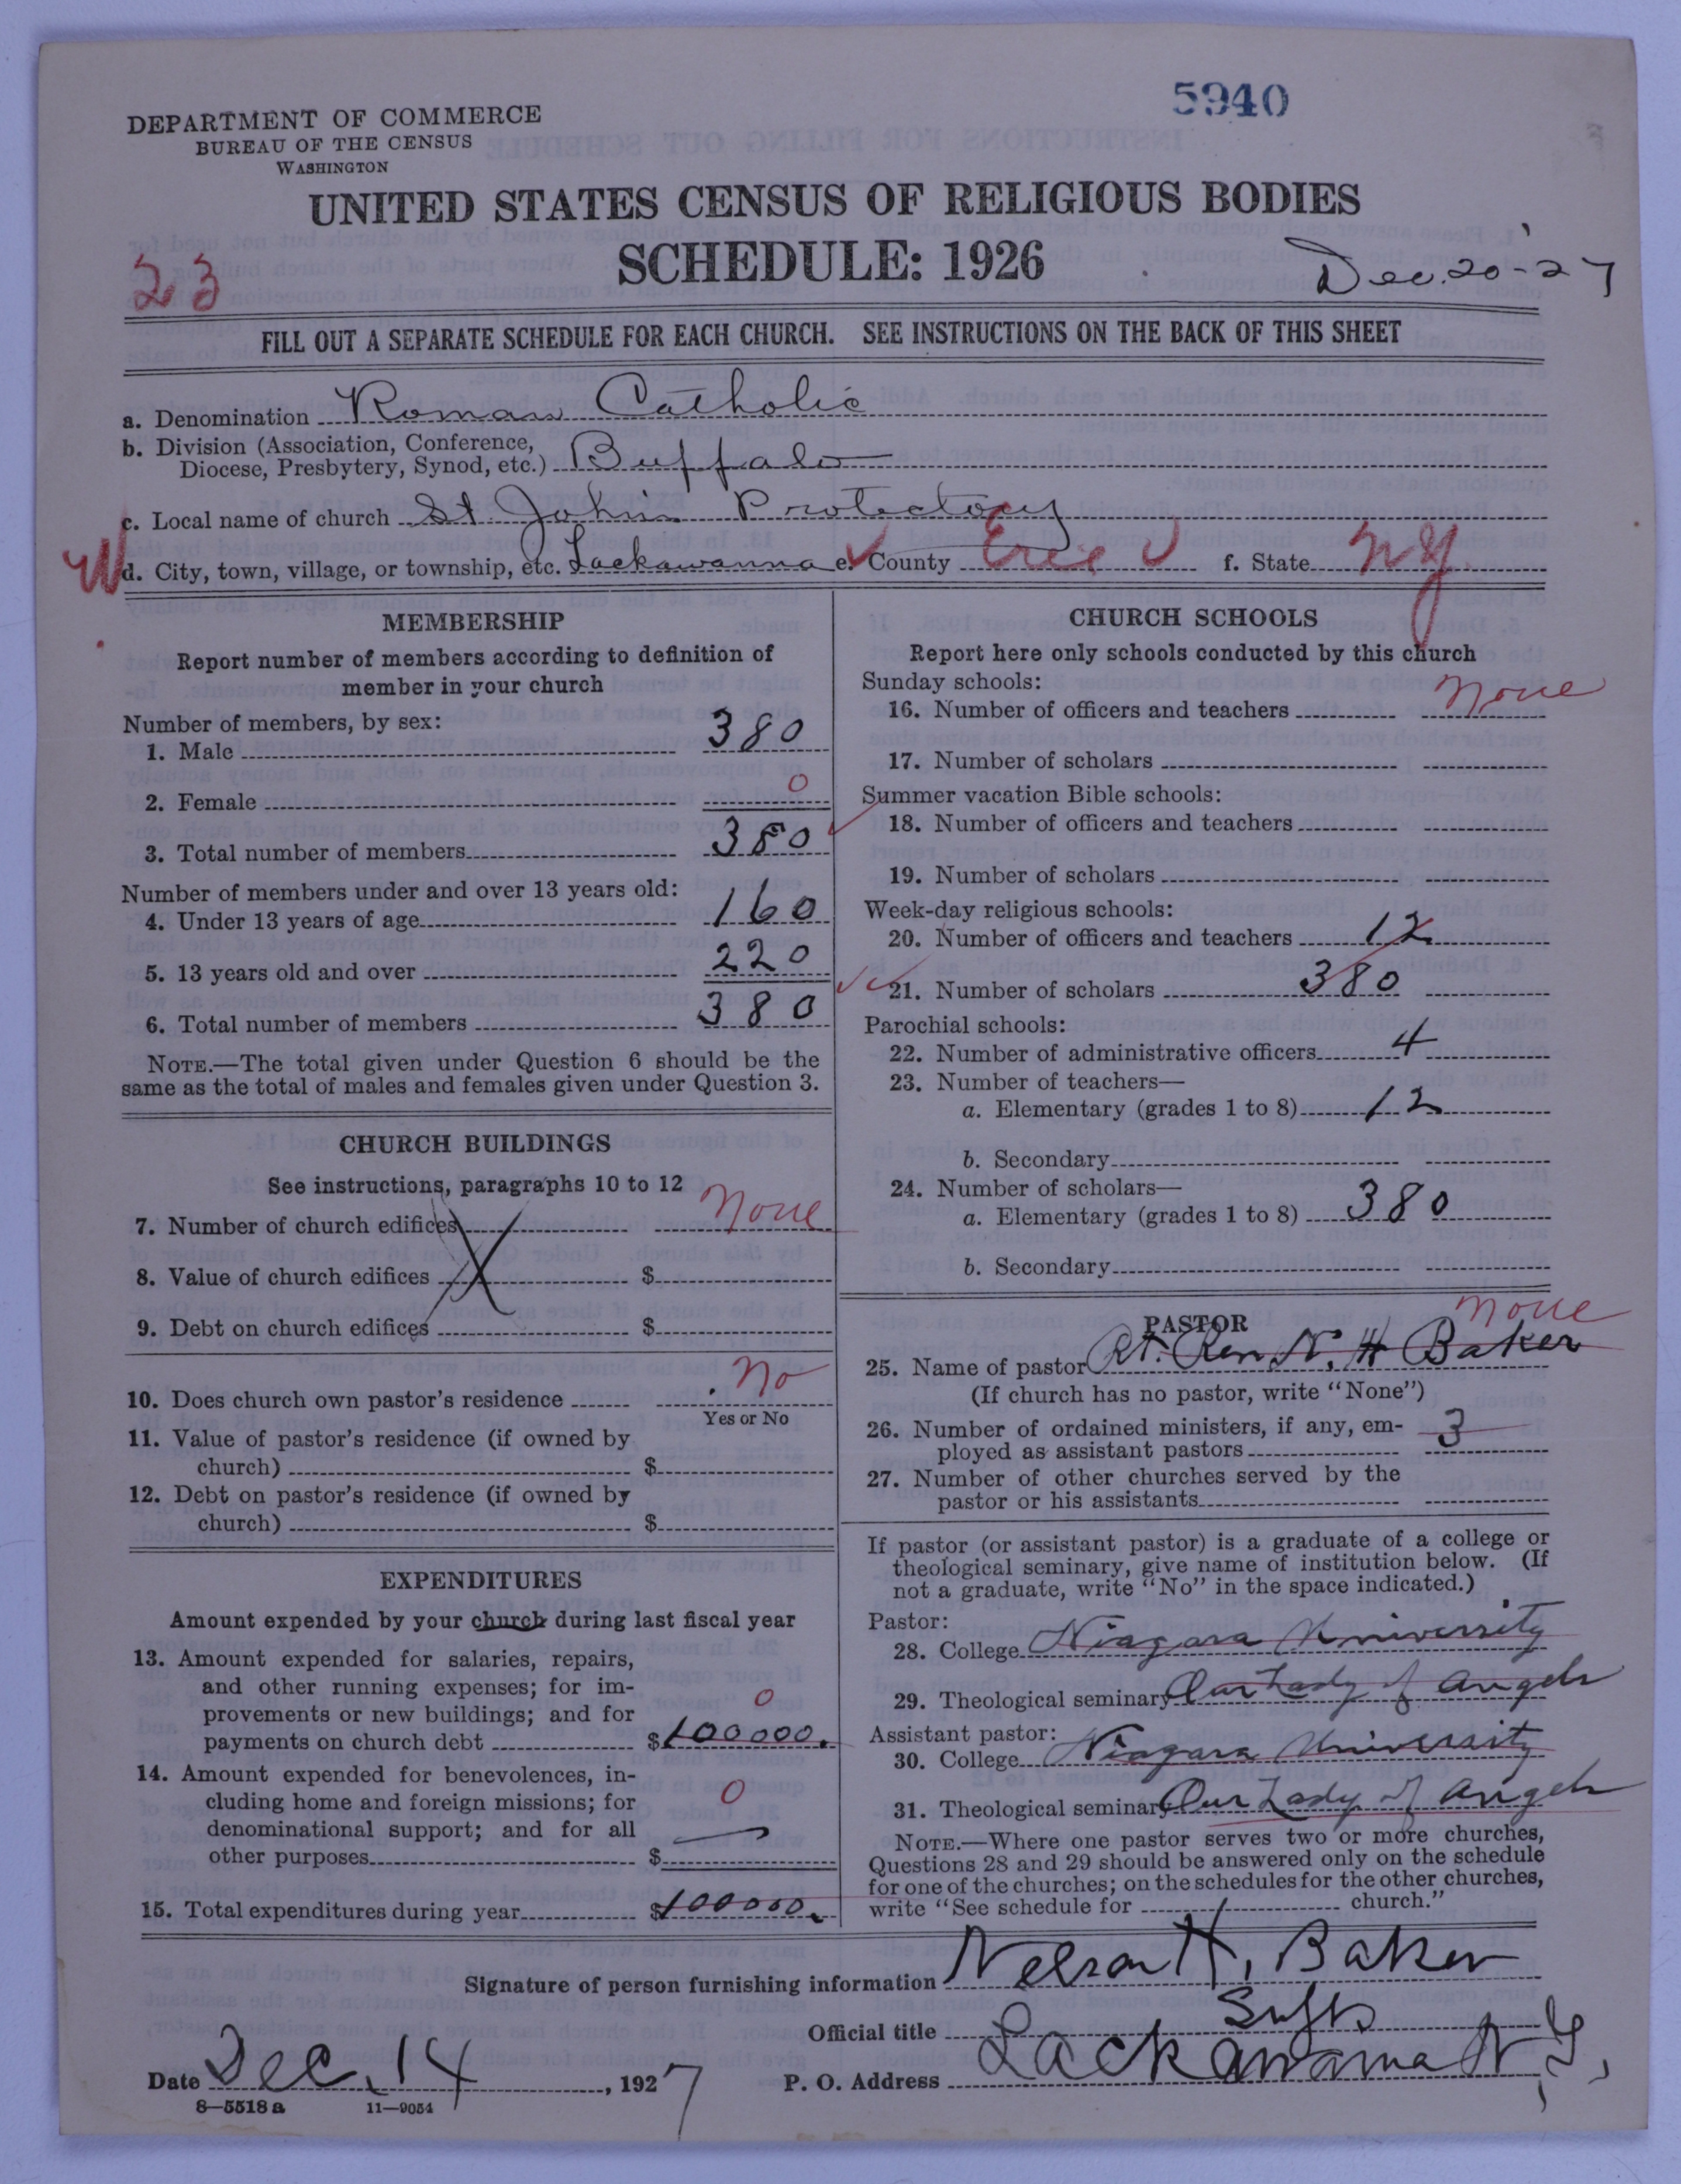 5940
DEPARTMENT OF COMMERCE
BUREAU OF THE CENSUS
WASHINGTON
UNITED STATES CENSUS OF RELIGIOUS BODIES
SCHEDULE: 1926
23
Dec. 20-27
FILL OUT A SEPARATE SCHEDULE FOR EACH CHURCH. SEE INSTRUCTIONS ON THE BACK OF THIS SHEET
a. Denomination Roman Catholic
b. Division (Association, Conference,
Diocese, Presbytery, Synod, etc.) Buffalo
c. Local name of church St. John's Protectory
W d. City, town, village, or township, etc. Lackawanna e. County Erie f. State NY
MEMBERSHIP
Report number of members according to definition of
member in your church
Number of members, by sex:
1. Male 380
2. Female 0
3. Total number of members 380
Number of members under and over 13 years old:
4. Under 13 years of age 160
5. 13 years old and over 220
6. Total number of members 380
NOTE.—The total given under Question 6 should be the
same as the total of males and females given under Question 3.
CHURCH BUILDINGS
See instructions, paragraphs 10 to 12
7. Number of church edifices None
8. Value of church edifices $
9. Debt on church edifices $
10. Does church own pastor's residence No
Yes or No
11. Value of pastor's residence (if owned by
church) $
12. Debt on pastor's residence (if owned by
church) $
EXPENDITURES
Amount expended by your church during last fiscal year
13. Amount expended for salaries, repairs,
and other running expenses; for im-
provements or new buildings; and for 0
payments on church debt $100000.
14. Amount expended for benevolences, in-
cluding home and foreign missions; for 0
denominational support; and for all
other purposes $
15. Total expenditures during year $100000.
CHURCH SCHOOLS
Report here only schools conducted by this church
Sunday schools:
16. Number of officers and teachers None
17. Number of scholars
Summer vacation Bible schools:
18. Number of officers and teachers
19. Number of scholars
Week-day religious schools:
20. Number of officers and teachers 12
21. Number of scholars 380
Parochial schools:
22. Number of administrative officers 4
23. Number of teachers—
a. Elementary (grades 1 to 8) 12
b. Secondary
24. Number of scholars—
a. Elementary (grades 1 to 8) 380
b. Secondary
PASTOR None
25. Name of pastor Rt. Rev N. H Baker
(If church has no pastor, write "None")
26. Number of ordained ministers, if any, em-
ployed as assistant pastors 3
27. Number of other churches served by the
pastor or his assistants
If pastor (or assistant pastor) is a graduate of a college or
theological seminary, give name of institution below. (If
not a graduate, write "No" in the space indicated.)
Pastor:
28. College Niagara University
29. Theological seminary Our Lady of Angels
Assistant pastor:
30. College Niagara University
31. Theological seminary Our Lady of Angels
NOTE.—Where one pastor serves two or more churches,
Questions 28 and 29 should be answered only on the schedule
for one of the churches; on the schedules for the other churches,
write "See schedule for church."
Signature of person furnishing information Nelson H. Baker
Official title Supt
Date Dec. 14, 1927 P. O. Address Lackawanna N.Y.
8—5518 a 11—9054